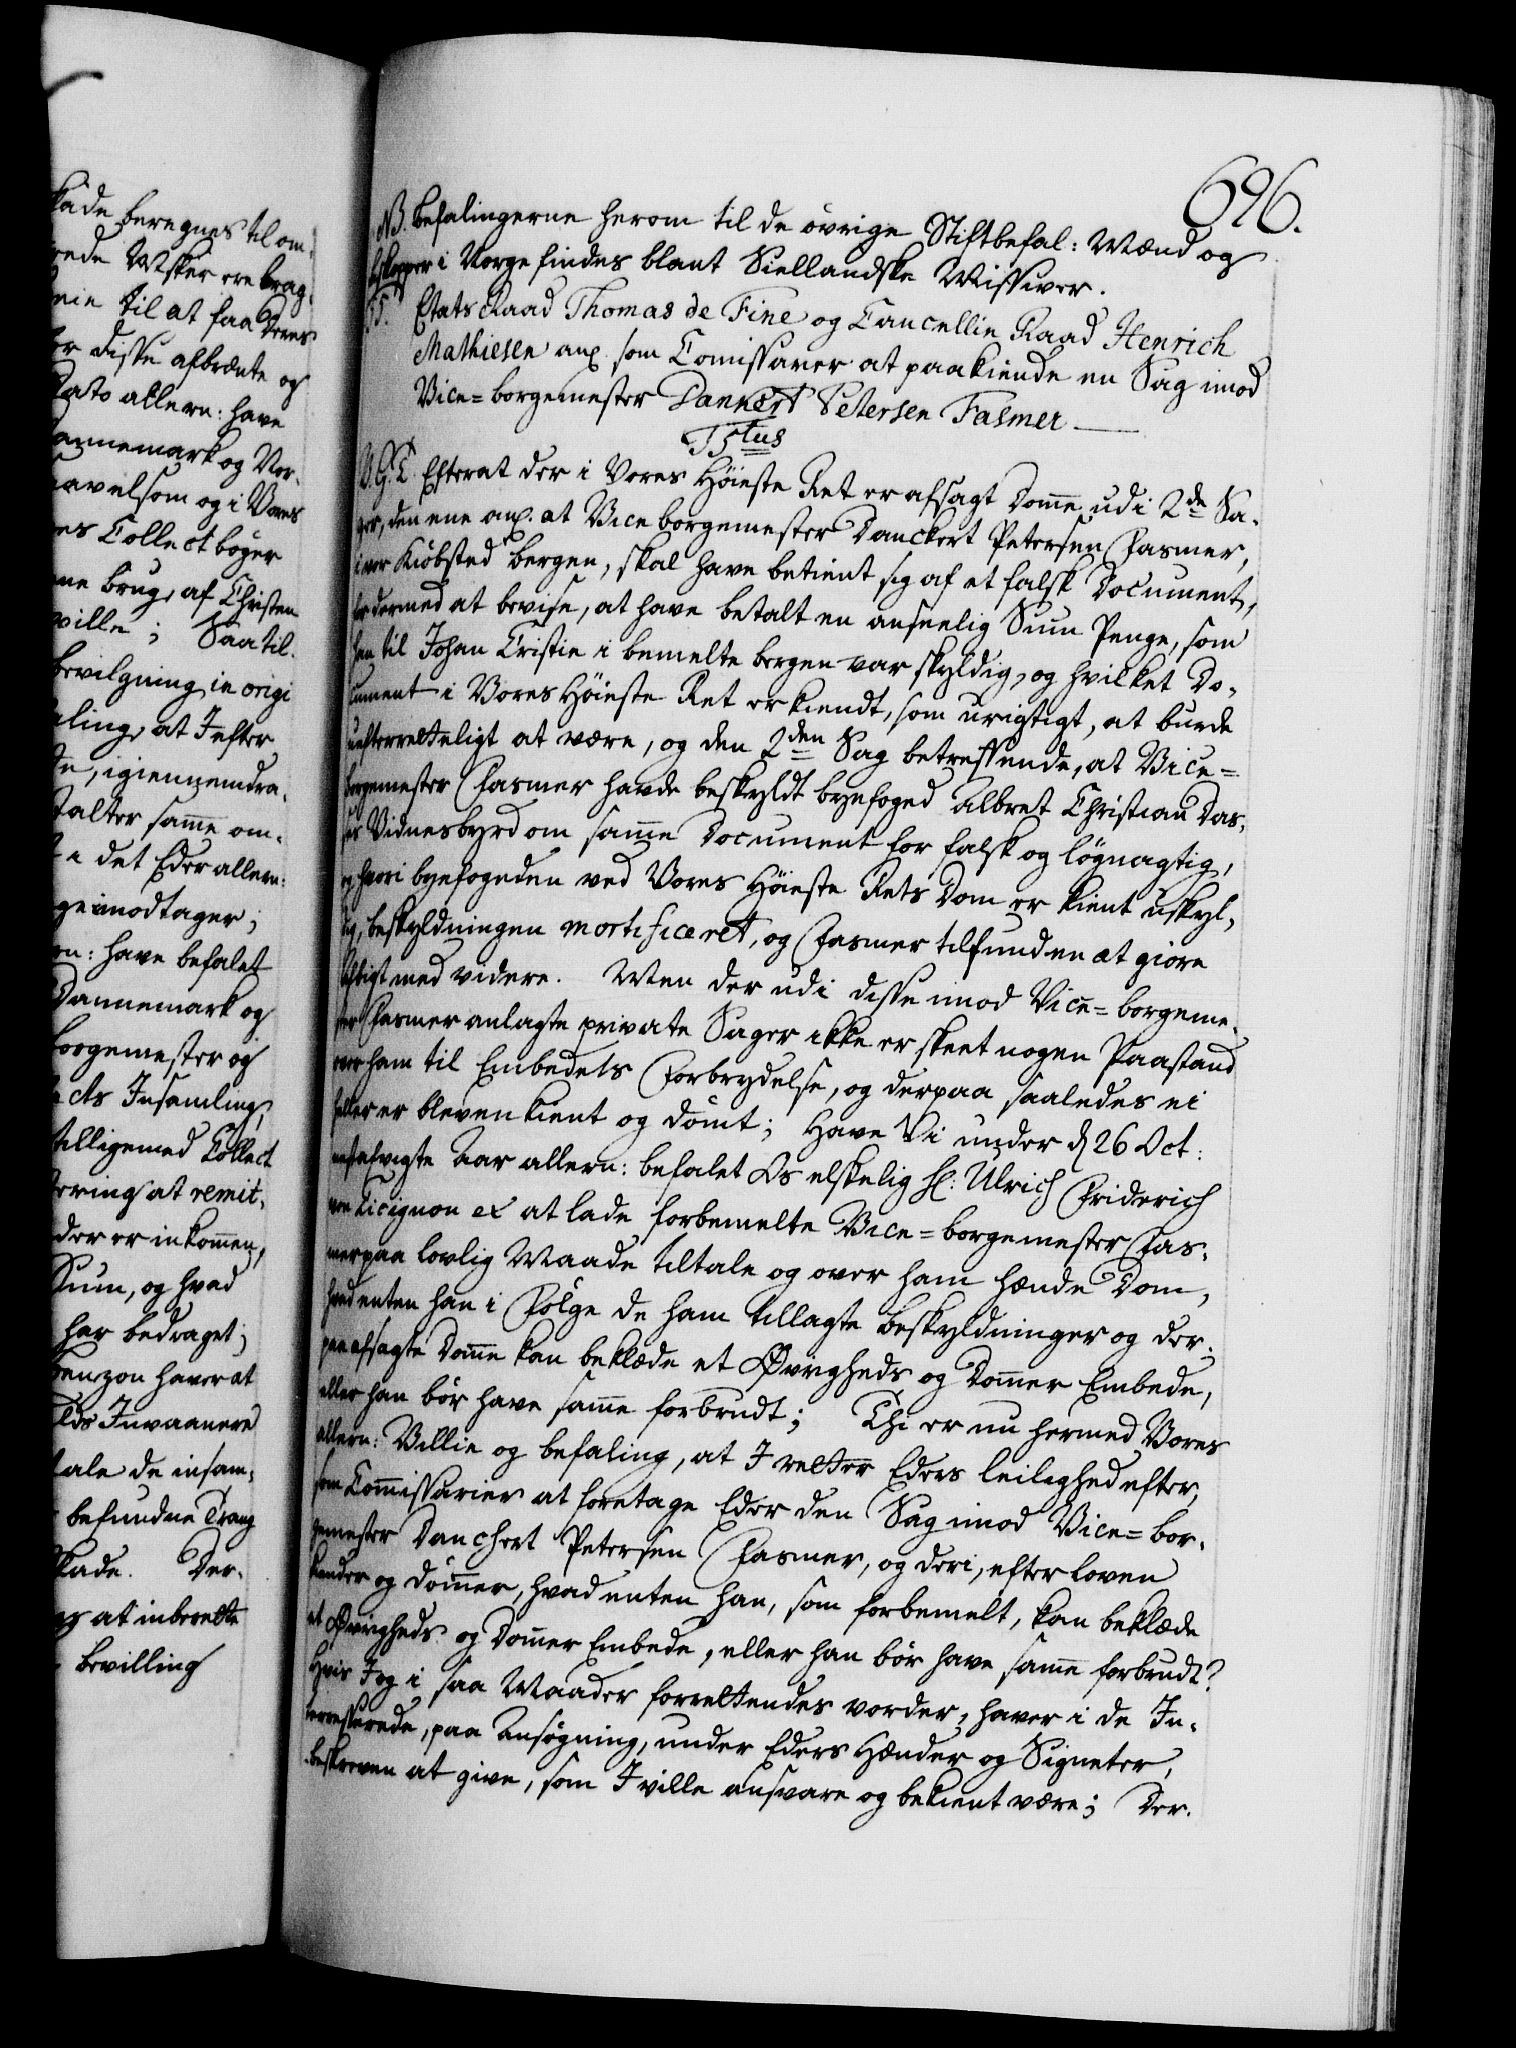 kade beregnes til om-
rede Kirker ere brag-
nie til at faa Deres
or disse afbrændte og
Dato allern: have
annemark og Nor-
aavelsom og i Vores
res Collect bøger
ne brug, af Christen
ville; Saa til-
bevilgning in origi
aling, at I efter
de, igiennemdra-
talter samme om-
t i det Eder allern:
ge imodtager;
rn: have befalet
Dannemark og
borgemester og
cts Insamling,
tilligemed Collect
ering at remit-
der er inkommen,
Sum, og hvad
har bedraget;
benzon haver at
lds Invaanere
tale de insam-
befundne Trang
kade. Der-
at inberette
bevilling
696.
NB. Befalingerne herom til de øvrige Stiftbefal: Mænd og
Biskopper i Norge findes blant Siellandske Missiver.
Etats Raad Thomas de Fine og Cancellie Raad Henrich
Mathiesen anx. som Comissarer at paakiende en Sag imod
Vice=borgemester Danckert Petersen Fasmer
V.G.T. Efterat der i Vores Høieste Ret er afsagt Domme udi 2de Sa-
ger, den ene anx. at Vice borgemester Danckert Petersen Fasmer,
i vor Kiøbsted Bergen, skal have betient sig af et falsk Document,
for dermed at bevise, at have betalt en anseelig Sum Penge, som
han til Johan Cristie i bemelte Bergen var skyldig, og hvilket Do-
cument i Vores Høieste Ret er kiendt, som urigtigt, at burde
uefterretteligt at være, og den 2den Sag betreffende, at Vice=
borgemester Fasmer havde beskyldt byefoged Albret Christian Das-
ses Vidnesbyrd om samme Document for falsk og løgnagtig,
og hvori byefogeden ved Vores Høieste Rets Dom er kient uskyl-
dig, beskyldningen mortificeret, og Fasmer tilfunden at giøre
Afbigt med videre. Men der udi disse imod Vice=borgeme-
ster Fasmer anlagte private Sager ikke er skeet nogen Paastand
over ham til Embedets Forbrydelse, og derpaa saaledes ei
heller er bleven kient og dømt; Have Vi under d 26 Oct:
nestafvigte Aar allern: befalet Os elskelig Hr: Ulrich Friderich
von Cicignon ex at lade forbemelte Vice=borgemester Fas-
mer paa lovlig Maade tiltale og over ham hænde Dom,
hvad enten han i Følge de ham tillagte beskyldninger og der-
paa afsagte Domme kan beklæde et Øvrigheds og Dommer Embede,
eller han bør have samme forbrudt; Thi er nu hermed Vores
allern: Villie og befaling, at I retter Eders leilighed efter,
som Commissarier at foretage Eder den Sag imod Vice=bor-
gemester Danchert Petersen Fasmer, og deri, efter loven
kiender og dømmer, hvad enten han, som forbemelt, kan beklæde
et Øvrigheds og Dommer Embede, eller han bør have samme forbrudt?
Hvis I og i saa Maader forrettendes vorder, haver i de In-
teresserede, paa Ansøgning, under Eders Hænder og Signeter,
beskreven at give, som I ville ansvare og bekient være; Der-